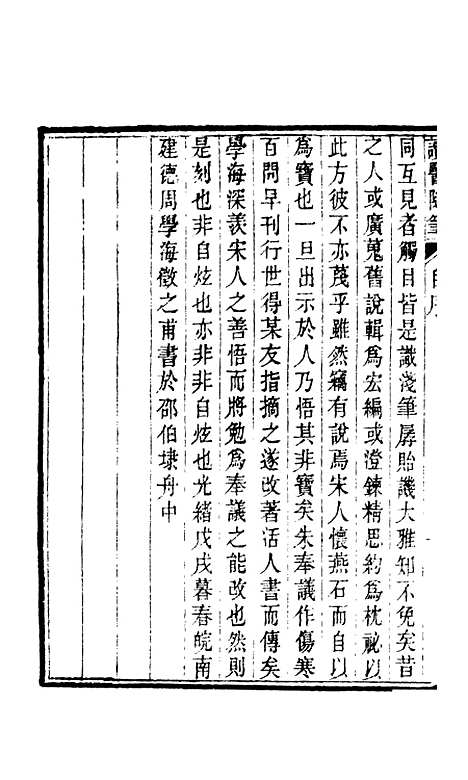 讀醫隨筆 自序
同互見者觸目皆是識淺筆孱貽譏大雅知不免矣昔
之人或廣蒐舊說輯爲宏編或澄鍊精思約爲枕祕以
此方彼不亦蔑乎雖然竊有說焉宋人懷燕石而自以
爲寶也一旦出示於人乃悟其非寶矣朱奉議作傷寒
百問早刊行世得某友指摘之遂改著活人書而傳矣
學海深羨宋人之善悟而將勉爲奉議之能改也然則
是刻也非自炫也亦非非自炫也光緒戊戌暮春皖南
建德周學海澂之甫書於邵伯埭舟中